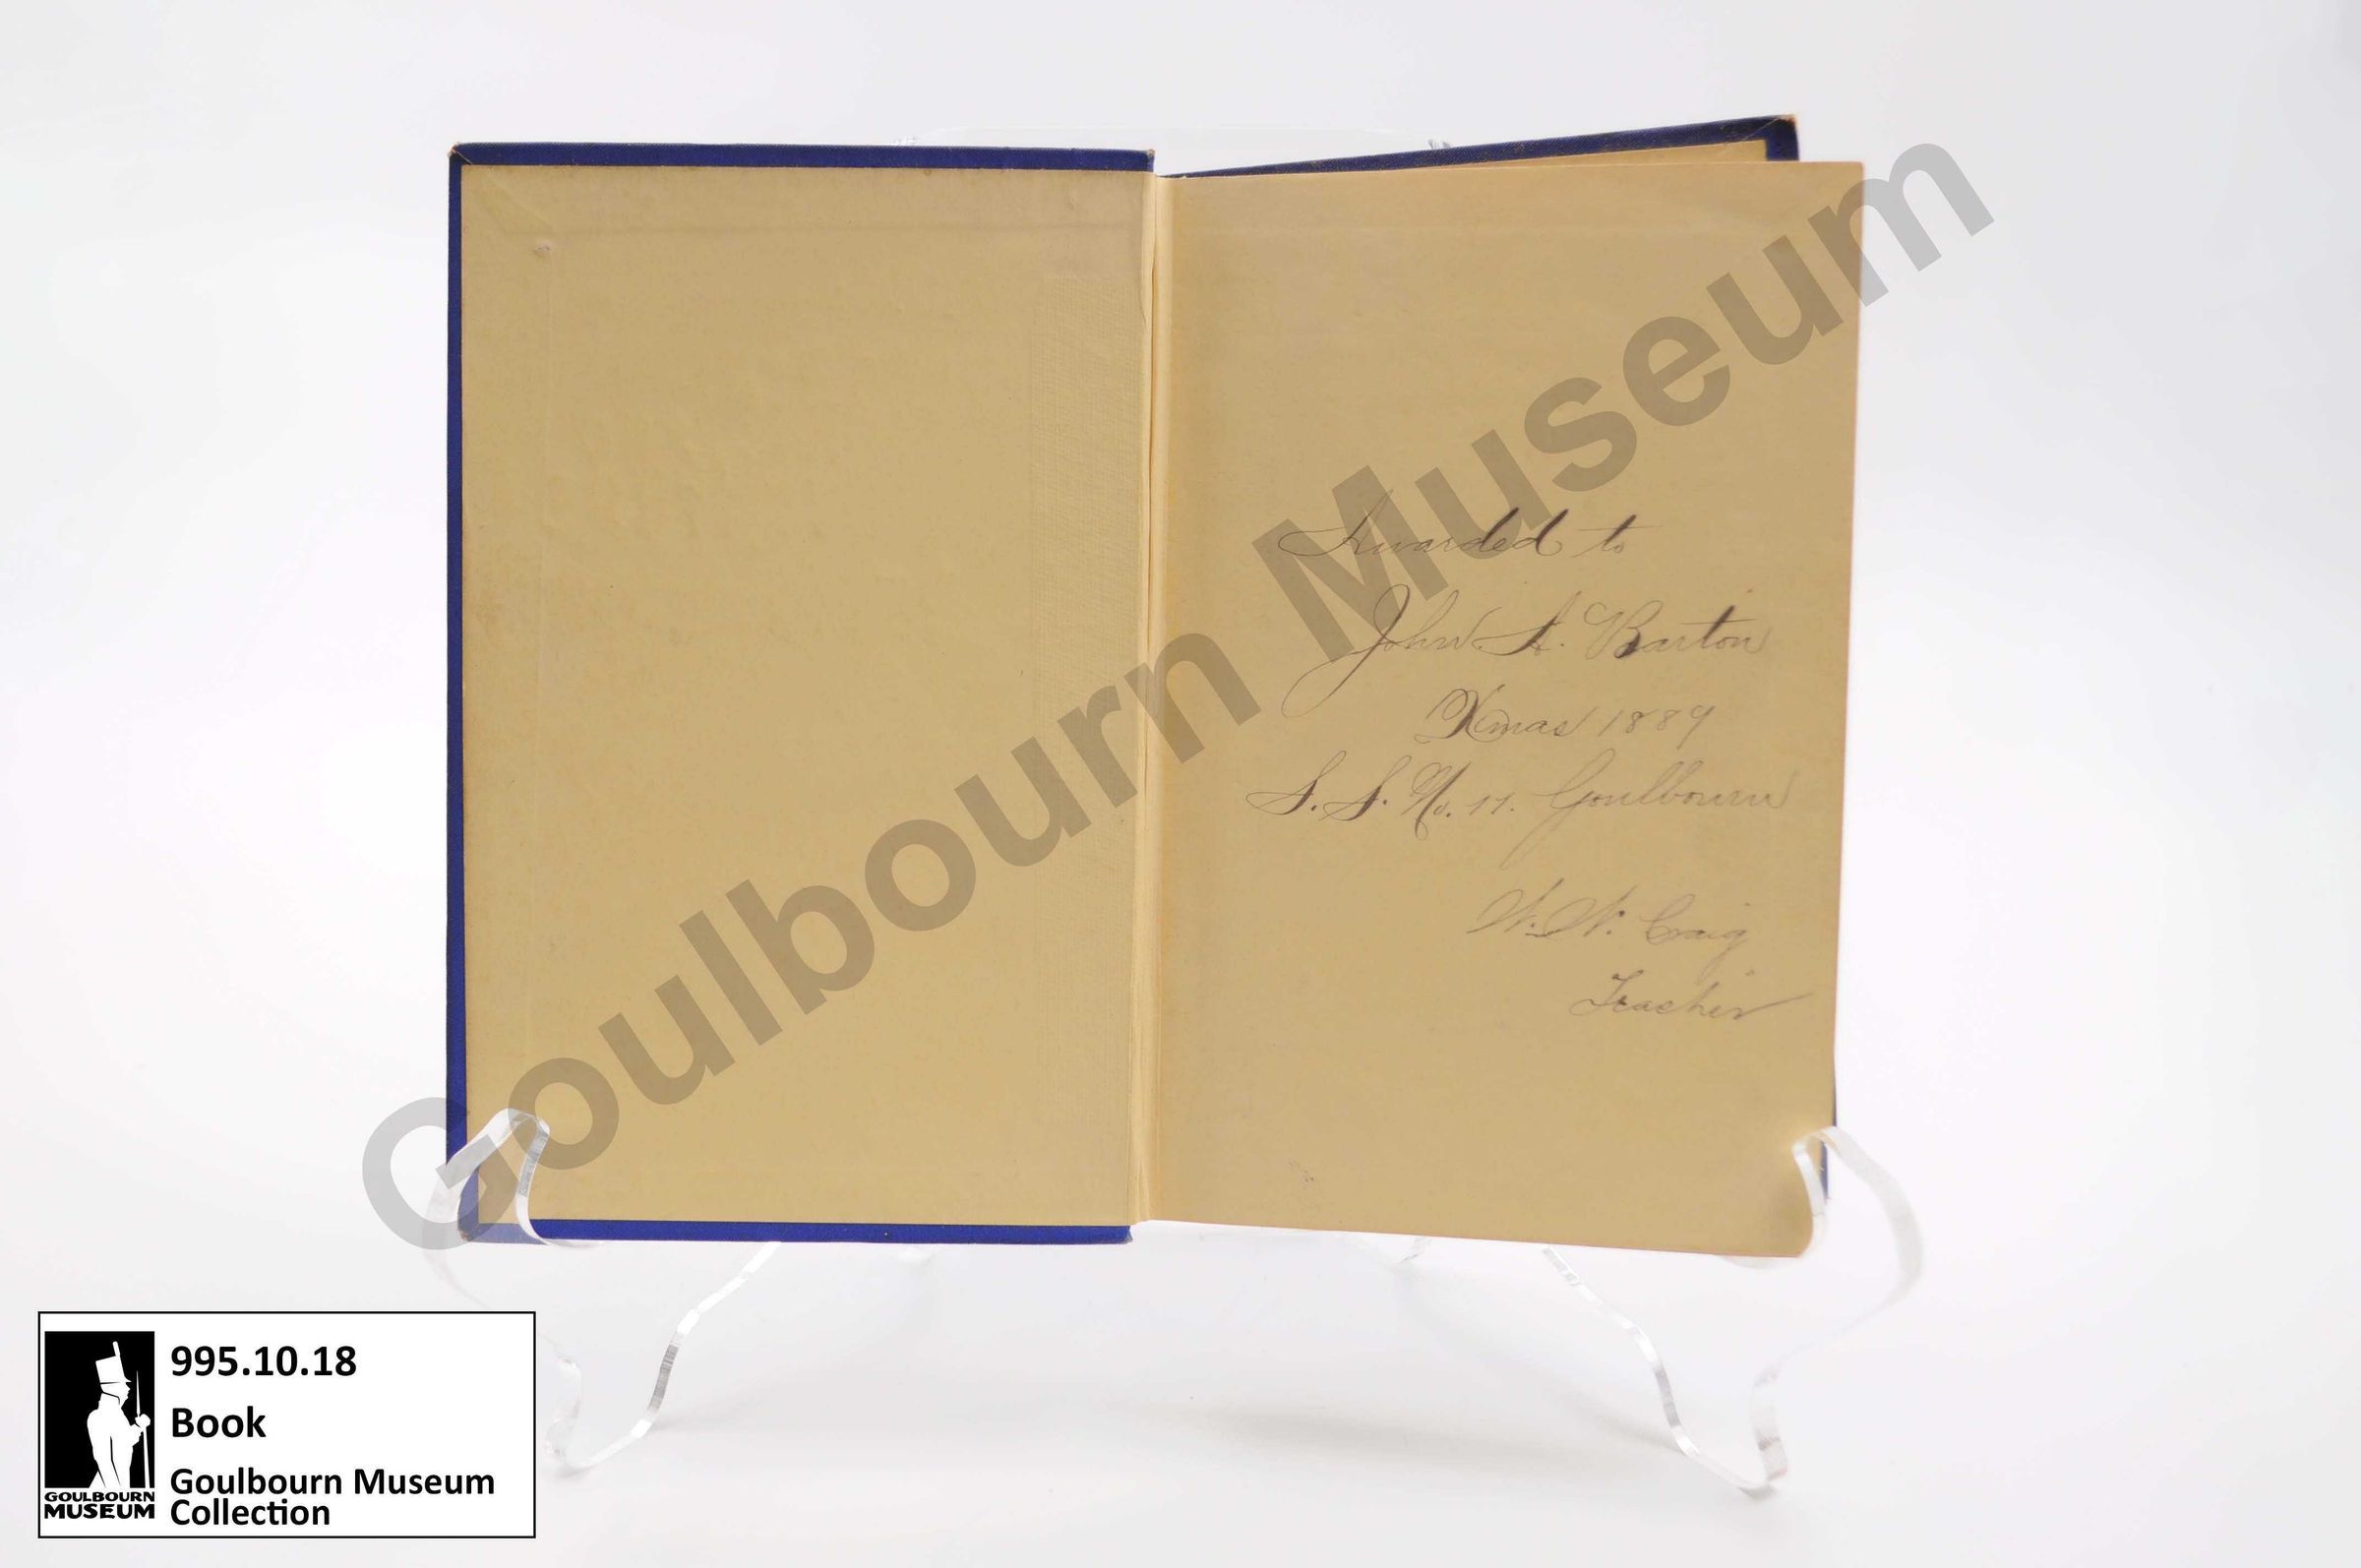 Awarded to
John A. Barton
Xmas 1889
S. S. No. 11. Goulbourn
W. W. Craig
Teacher
Goulbourn Museum
995.10.18
Book
Goulbourn Museum
Collection
GOULBOURN
MUSEUM